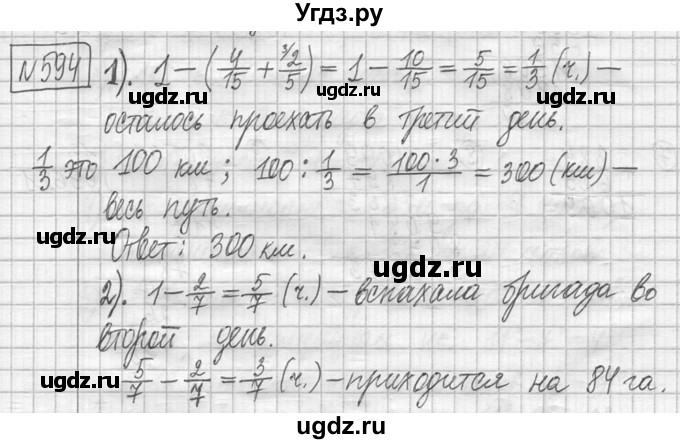 Угдз.ру
№594 1). 1 − (4/15 + ³⁾2/5) = 1 − 10/15 = 5/15 = 1/3 (ч.) −
ugdz.ru ugdz.ru ugdz.ru
осталось проехать в третий день.
1/3 это 100 км; 100 : 1/3 = 100·3/1 = 300 (км) −
весь путь.
ugdz.ru ugdz.ru ugdz.ru
Ответ: 300 км.
2). 1 − 2/7 = 5/7 (ч.) − вспахала бригада во
ugdz.ru ugdz.ru
второй день.
5/7 − 2/7 = 3/7 (ч.) − приходится на 84 га.
ugdz.ru ugdz.ru ugdz.ru
Угдз.ру